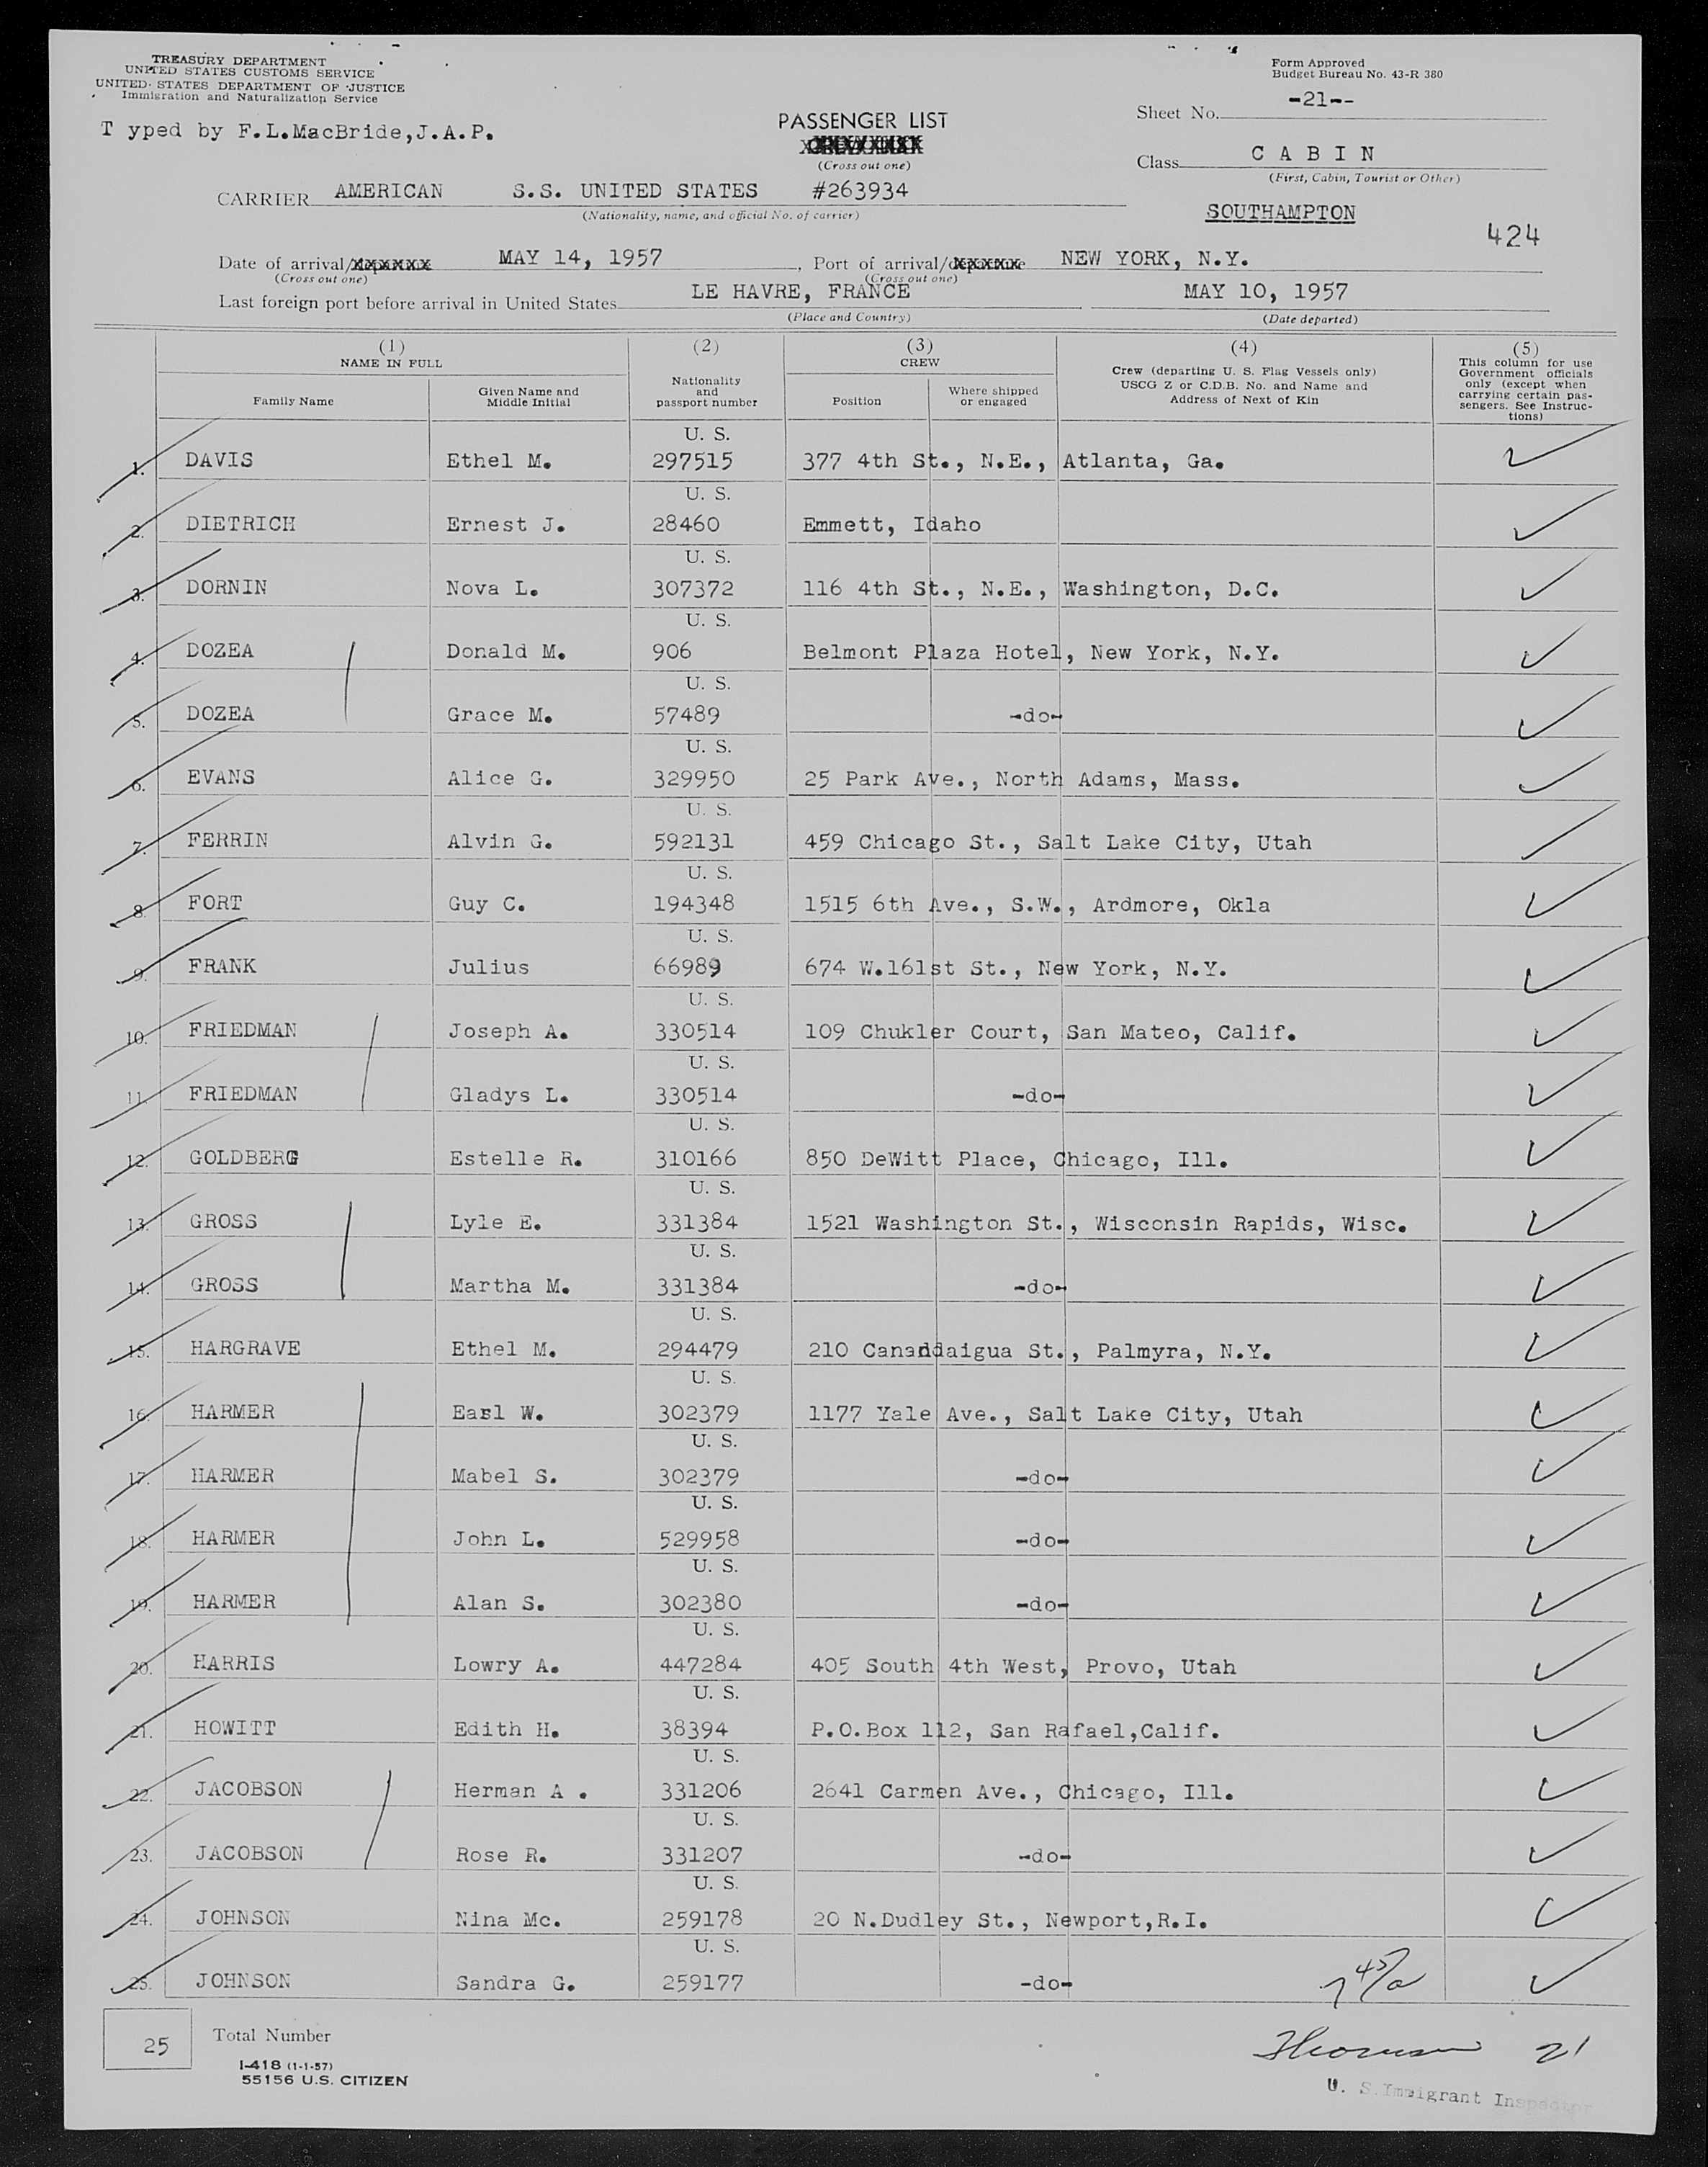 TREASURY DEPARTMENT
UNITED STATES CUSTOMS SERVICE
UNITED STATES DEPARTMENT OF JUSTICE
Immigration and Naturalization Service
T yped by F.L.MacBride,J.A.P.
Form Approved
Budget Bureau No. 43-R 380
Sheet No. -21--
PASSENGER LIST
(Cross out one)
Class C A B I N
(First, Cabin, Tourist or Other)
CARRIER AMERICAN S.S. UNITED STATES #263934
(Nationality, name, and official No. of carrier)
SOUTHAMPTON
424
Date of arrival/departure MAY 14, 1957, Port of arrival/departure NEW YORK, N.Y.
(Cross out one) (Cross out one)
Last foreign port before arrival in United States LE HAVRE, FRANCE MAY 10, 1957
(Place and Country) (Date departed)
(1) NAME IN FULL
Family Name
Given Name and Middle Initial
(2)
Nationality and passport number
(3) CREW
Position
Where shipped or engaged
(4)
Crew (departing U. S. Flag Vessels only)
USCG Z or C.D.B. No. and Name and
Address of Next of Kin
(5)
This column for use
Government officials
only (except when
carrying certain pas-
sengers. See Instruc-
tions)
U. S.
1. DAVIS Ethel M. 297515 377 4th St., N.E., Atlanta, Ga.
U. S.
2. DIETRICH Ernest J. 28460 Emmett, Idaho
U. S.
3. DORNIN Nova L. 307372 116 4th St., N.E., Washington, D.C.
U. S.
4. DOZEA Donald M. 906 Belmont Plaza Hotel, New York, N.Y.
U. S.
5. DOZEA Grace M. 57489 -do-
U. S.
6. EVANS Alice G. 329950 25 Park Ave., North Adams, Mass.
U. S.
7. FERRIN Alvin G. 592131 459 Chicago St., Salt Lake City, Utah
U. S.
8. FORT Guy C. 194348 1515 6th Ave., S.W., Ardmore, Okla
U. S.
9. FRANK Julius 66989 674 W.161st St., New York, N.Y.
U. S.
10. FRIEDMAN Joseph A. 330514 109 Chukler Court, San Mateo, Calif.
U. S.
11. FRIEDMAN Gladys L. 330514 -do-
U. S.
12. GOLDBERG Estelle R. 310166 850 DeWitt Place, Chicago, Ill.
U. S.
13. GROSS Lyle E. 331384 1521 Washington St., Wisconsin Rapids, Wisc.
U. S.
14. GROSS Martha M. 331384 -do-
U. S.
15. HARGRAVE Ethel M. 294479 210 Canandaigua St., Palmyra, N.Y.
U. S.
16. HARMER Earl W. 302379 1177 Yale Ave., Salt Lake City, Utah
U. S.
17. HARMER Mabel S. 302379 -do-
U. S.
18. HARMER John L. 529958 -do-
U. S.
19. HARMER Alan S. 302380 -do-
U. S.
20. HARRIS Lowry A. 447284 405 South 4th West, Provo, Utah
U. S.
21. HOWITT Edith H. 38394 P.O.Box 112, San Rafael,Calif.
U. S.
22. JACOBSON Herman A . 331206 2641 Carmen Ave., Chicago, Ill.
U. S.
23. JACOBSON Rose R. 331207 -do-
U. S.
24. JOHNSON Nina Mc. 259178 20 N.Dudley St., Newport,R.I.
U. S.
25. JOHNSON Sandra G. 259177 -do-
25 Total Number
I-418 (1-1-57)
55156 U.S. CITIZEN
21
U. S. Immigrant Inspector